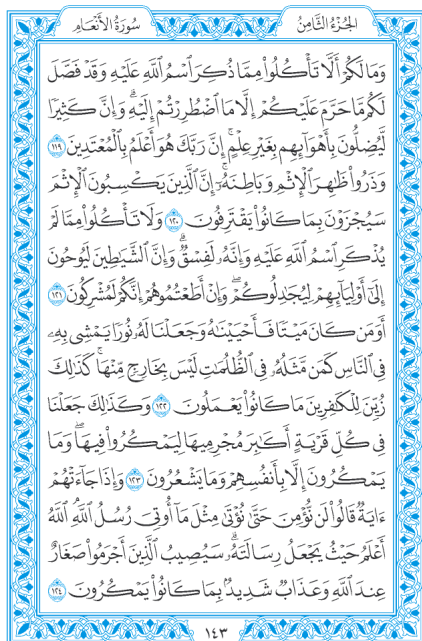 الجُزْءُ الثَّامِنُ
سُورَةُ الأَنْعَامِ
وَمَا لَكُمْ أَلَّا تَأْكُلُوا۟ مِمَّا ذُكِرَ ٱسْمُ ٱللَّهِ عَلَيْهِ وَقَدْ فَصَّلَ
لَكُم مَّا حَرَّمَ عَلَيْكُمْ إِلَّا مَا ٱضْطُرِرْتُمْ إِلَيْهِ ۗ وَإِنَّ كَثِيرًا
لَّيُضِلُّونَ بِأَهْوَآئِهِم بِغَيْرِ عِلْمٍ ۗ إِنَّ رَبَّكَ هُوَ أَعْلَمُ بِٱلْمُعْتَدِينَ ١١٩
وَذَرُوا۟ ظَٰهِرَ ٱلْإِثْمِ وَبَاطِنَهُۥٓ ۚ إِنَّ ٱلَّذِينَ يَكْسِبُونَ ٱلْإِثْمَ
سَيُجْزَوْنَ بِمَا كَانُوا۟ يَقْتَرِفُونَ ١٢٠ وَلَا تَأْكُلُوا۟ مِمَّا لَمْ
يُذْكَرِ ٱسْمُ ٱللَّهِ عَلَيْهِ وَإِنَّهُۥ لَفِسْقٌ ۗ وَإِنَّ ٱلشَّيَٰطِينَ لَيُوحُونَ
إِلَىٰٓ أَوْلِيَآئِهِمْ لِيُجَٰدِلُوكُمْ ۖ وَإِنْ أَطَعْتُمُوهُمْ إِنَّكُمْ لَمُشْرِكُونَ ١٢١
أَوَمَن كَانَ مَيْتًا فَأَحْيَيْنَٰهُ وَجَعَلْنَا لَهُۥ نُورًا يَمْشِى بِهِۦ
فِى ٱلنَّاسِ كَمَن مَّثَلُهُۥ فِى ٱلظُّلُمَٰتِ لَيْسَ بِخَارِجٍ مِّنْهَا ۚ كَذَٰلِكَ
زُيِّنَ لِلْكَٰفِرِينَ مَا كَانُوا۟ يَعْمَلُونَ ١٢٢ وَكَذَٰلِكَ جَعَلْنَا
فِى كُلِّ قَرْيَةٍ أَكَٰبِرَ مُجْرِمِيهَا لِيَمْكُرُوا۟ فِيهَا ۖ وَمَا
يَمْكُرُونَ إِلَّا بِأَنفُسِهِمْ وَمَا يَشْعُرُونَ ١٢٣ وَإِذَا جَآءَتْهُمْ
ءَايَةٌ قَالُوا۟ لَن نُّؤْمِنَ حَتَّىٰ نُؤْتَىٰ مِثْلَ مَآ أُوتِىَ رُسُلُ ٱللَّهِ ۘ ٱللَّهُ
أَعْلَمُ حَيْثُ يَجْعَلُ رِسَالَتَهُۥ ۗ سَيُصِيبُ ٱلَّذِينَ أَجْرَمُوا۟ صَغَارٌ
عِندَ ٱللَّهِ وَعَذَابٌ شَدِيدٌۢ بِمَا كَانُوا۟ يَمْكُرُونَ ١٢٤
١٤٣